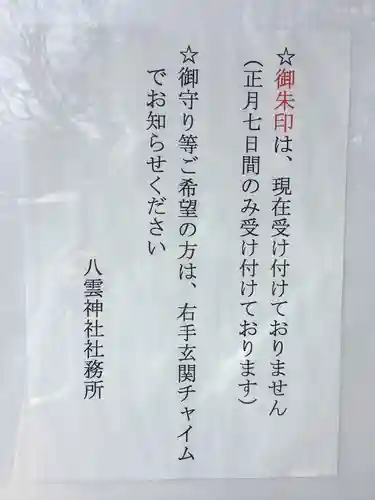 ☆御朱印は、現在受け付けておりません
(正月七日間のみ受け付けております)
☆御守り等ご希望の方は、右手玄関チャイム
でお知らせください
八雲神社社務所